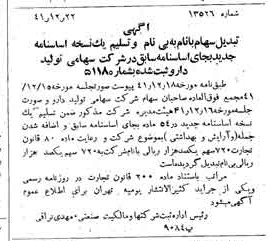 شماره ۱۳۵۲۶ ۴۱/۱۲/۲۲
آگهی
تبدیل سهام بانام به بی نام و تسلیم یك نسخه اساسنامه
جدید بجای اساسنامه سابق در شرکت سهامی تولید
دارو ثبت شده بشماره ۵۱۱۸
طبق نامه مورخه ۴۱/۱۲/۱۸ پیوست صورتجلسه مورخه ۱۲/۱۵/
۴۱ مجمع فوق‌العاده صاحبان سهام شرکت سهامی تولید دارو و صورت
جلسه مورخه ۴۱/۱۲/۱۶ هیئت مدیره شرکت مذکور ضمن تسلیم یك
نسخه اساسنامه جدید در ۵۴ ماده بجای اساسنامه سابق و اضافه شدن
جمله (و آرایش و بهداشتی) بموضوع شرکت و رعایت ماده ۸۰ قانون
تجارت ۷۲۰ سهم یکصد هزار ریالی بانام شرکت به ۷۲۰ سهم یکصد هزار
ریالی بی‌نام تبدیل گردیده است
مراتب باستناد ماده ۲۰۰ قانون تجارت در روزنامه رسمی
و یکی از جراید کثیرالانتشار یومیه تهران برای اطلاع عموم
آگهی میشود
رئیس اداره ثبت شرکتها و مالکیت صنعتی - مهدی نراقی
پ ۹۰۸۴